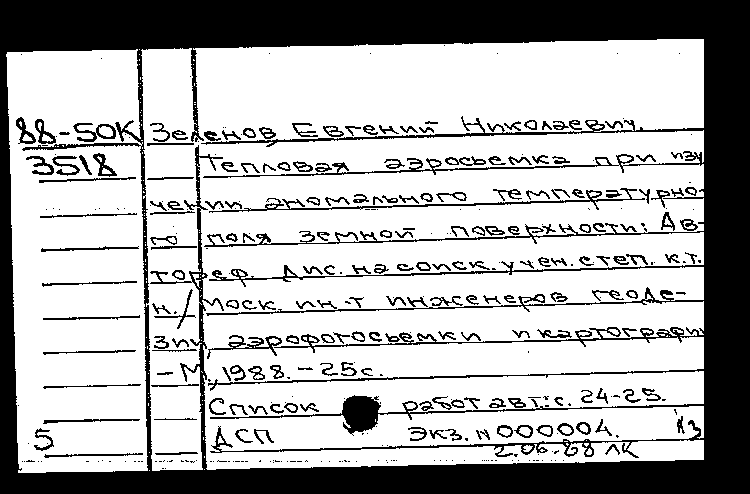 88-50К Зеленов, Евгений Николаевич.
3518 Тепловая аэросъемка при изу
чении аномального температурно-
го поля земной поверхности: Ав-
тореф. дис. на соиск. учен. степ. к.т.
н./ Моск. ин-т инженеров геоде-
зии, аэрофотосъемки и картографии
- М., 1988. - 25с.
Список работ авт.: с. 24-25.
5 ДСП Экз. N 000004.
2.06.88 ЛК